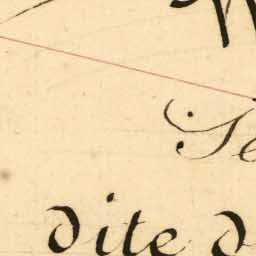 Se
dite d